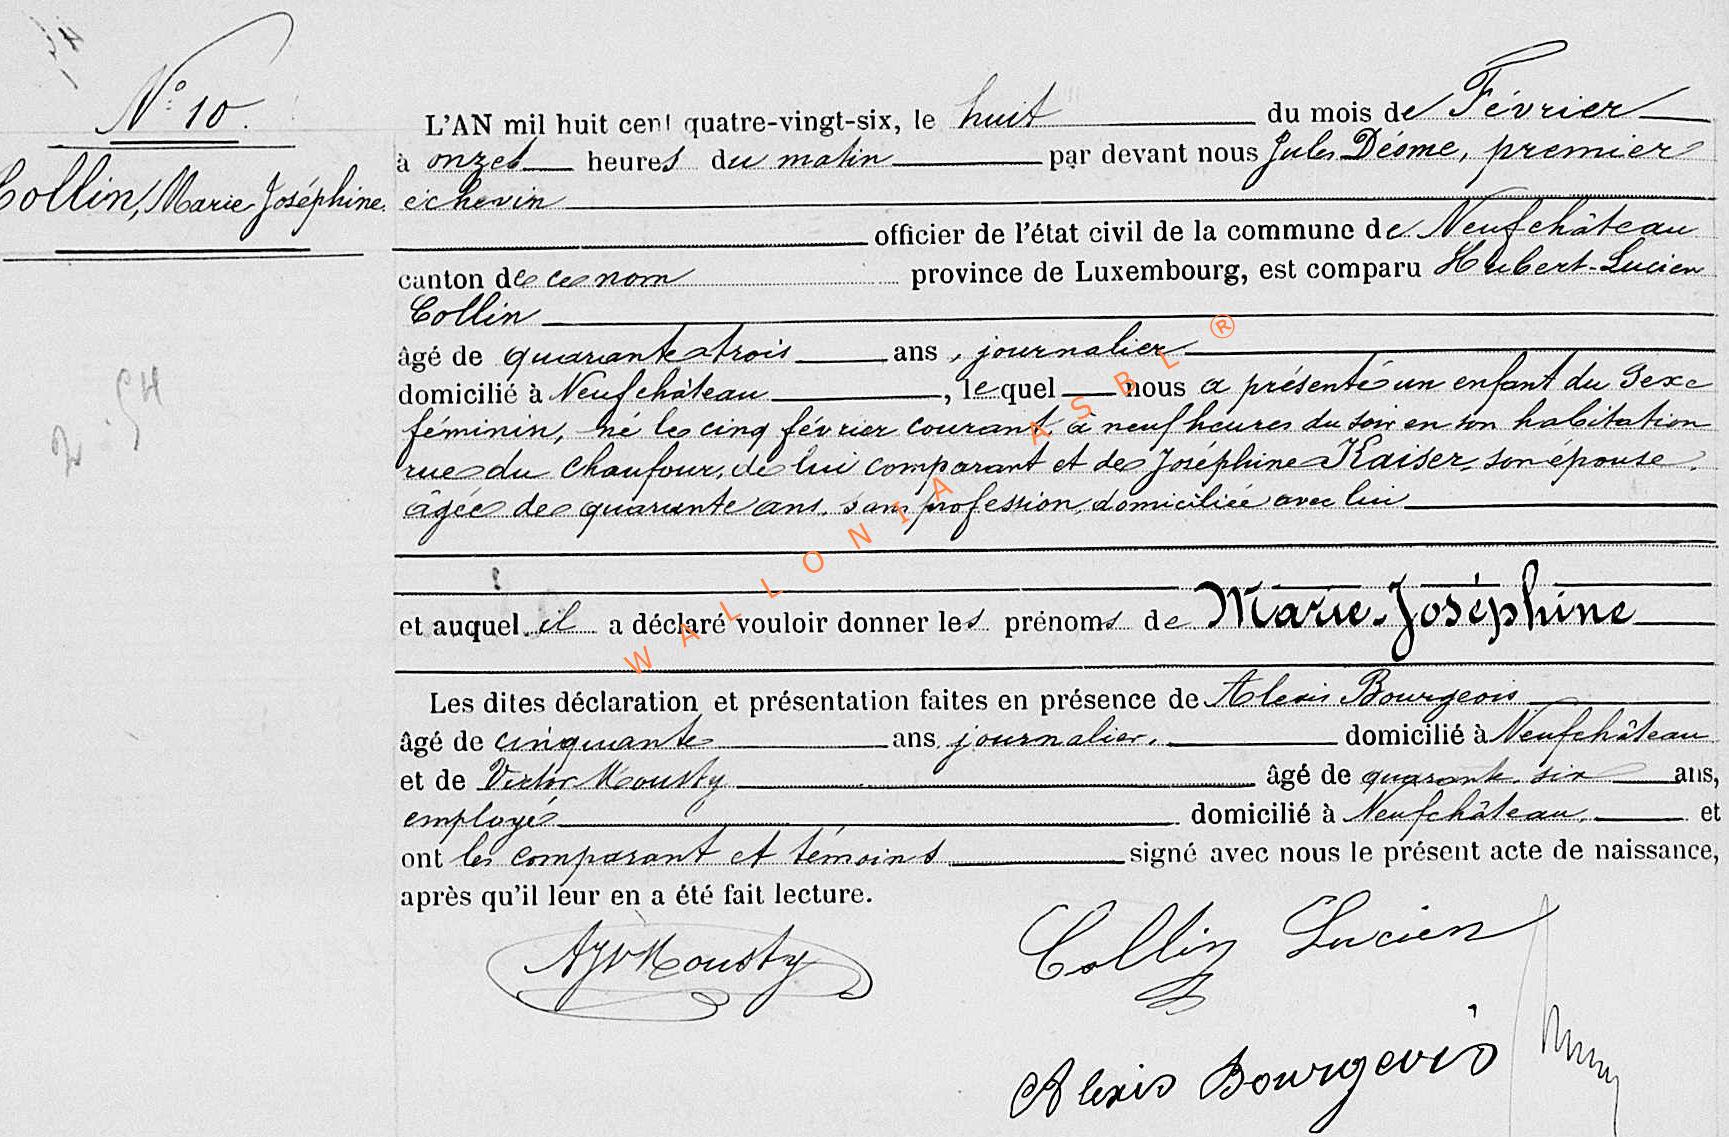 N° 10.
Collin, Marie Joséphine.
L'AN mil huit cent quatre-vingt-six, le huit du mois de Février
à onze heures du matin par devant nous Jules Déome, premier
échevin
officier de l'état civil de la commune de Neufchâteau
canton de ce nom province de Luxembourg, est comparu Hubert-Lucien
Collin
âgé de quarante trois ans, journalier
domicilié à Neufchâteau, lequel nous a présenté un enfant du sexe
féminin, né le cinq février courant, à neuf heures du soir en son habitation
rue du Chaufour, de lui comparant et de Joséphine Kaiser, son épouse,
âgée de quarante ans, sans profession, domiciliée avec lui
et auquel il a déclaré vouloir donner les prénoms de Marie-Joséphine
Les dites déclaration et présentation faites en présence de Alexis Bourgeois
âgé de cinquante ans, journalier, domicilié à Neufchâteau
et de Victor Mousty âgé de quarante-six ans,
employé domicilié à Neufchâteau, et
ont les comparant et témoins signé avec nous le présent acte de naissance,
après qu'il leur en a été fait lecture.
Mousty
Collin Lucien
Alexis Bourgeois
WALLONIA ASBL ®